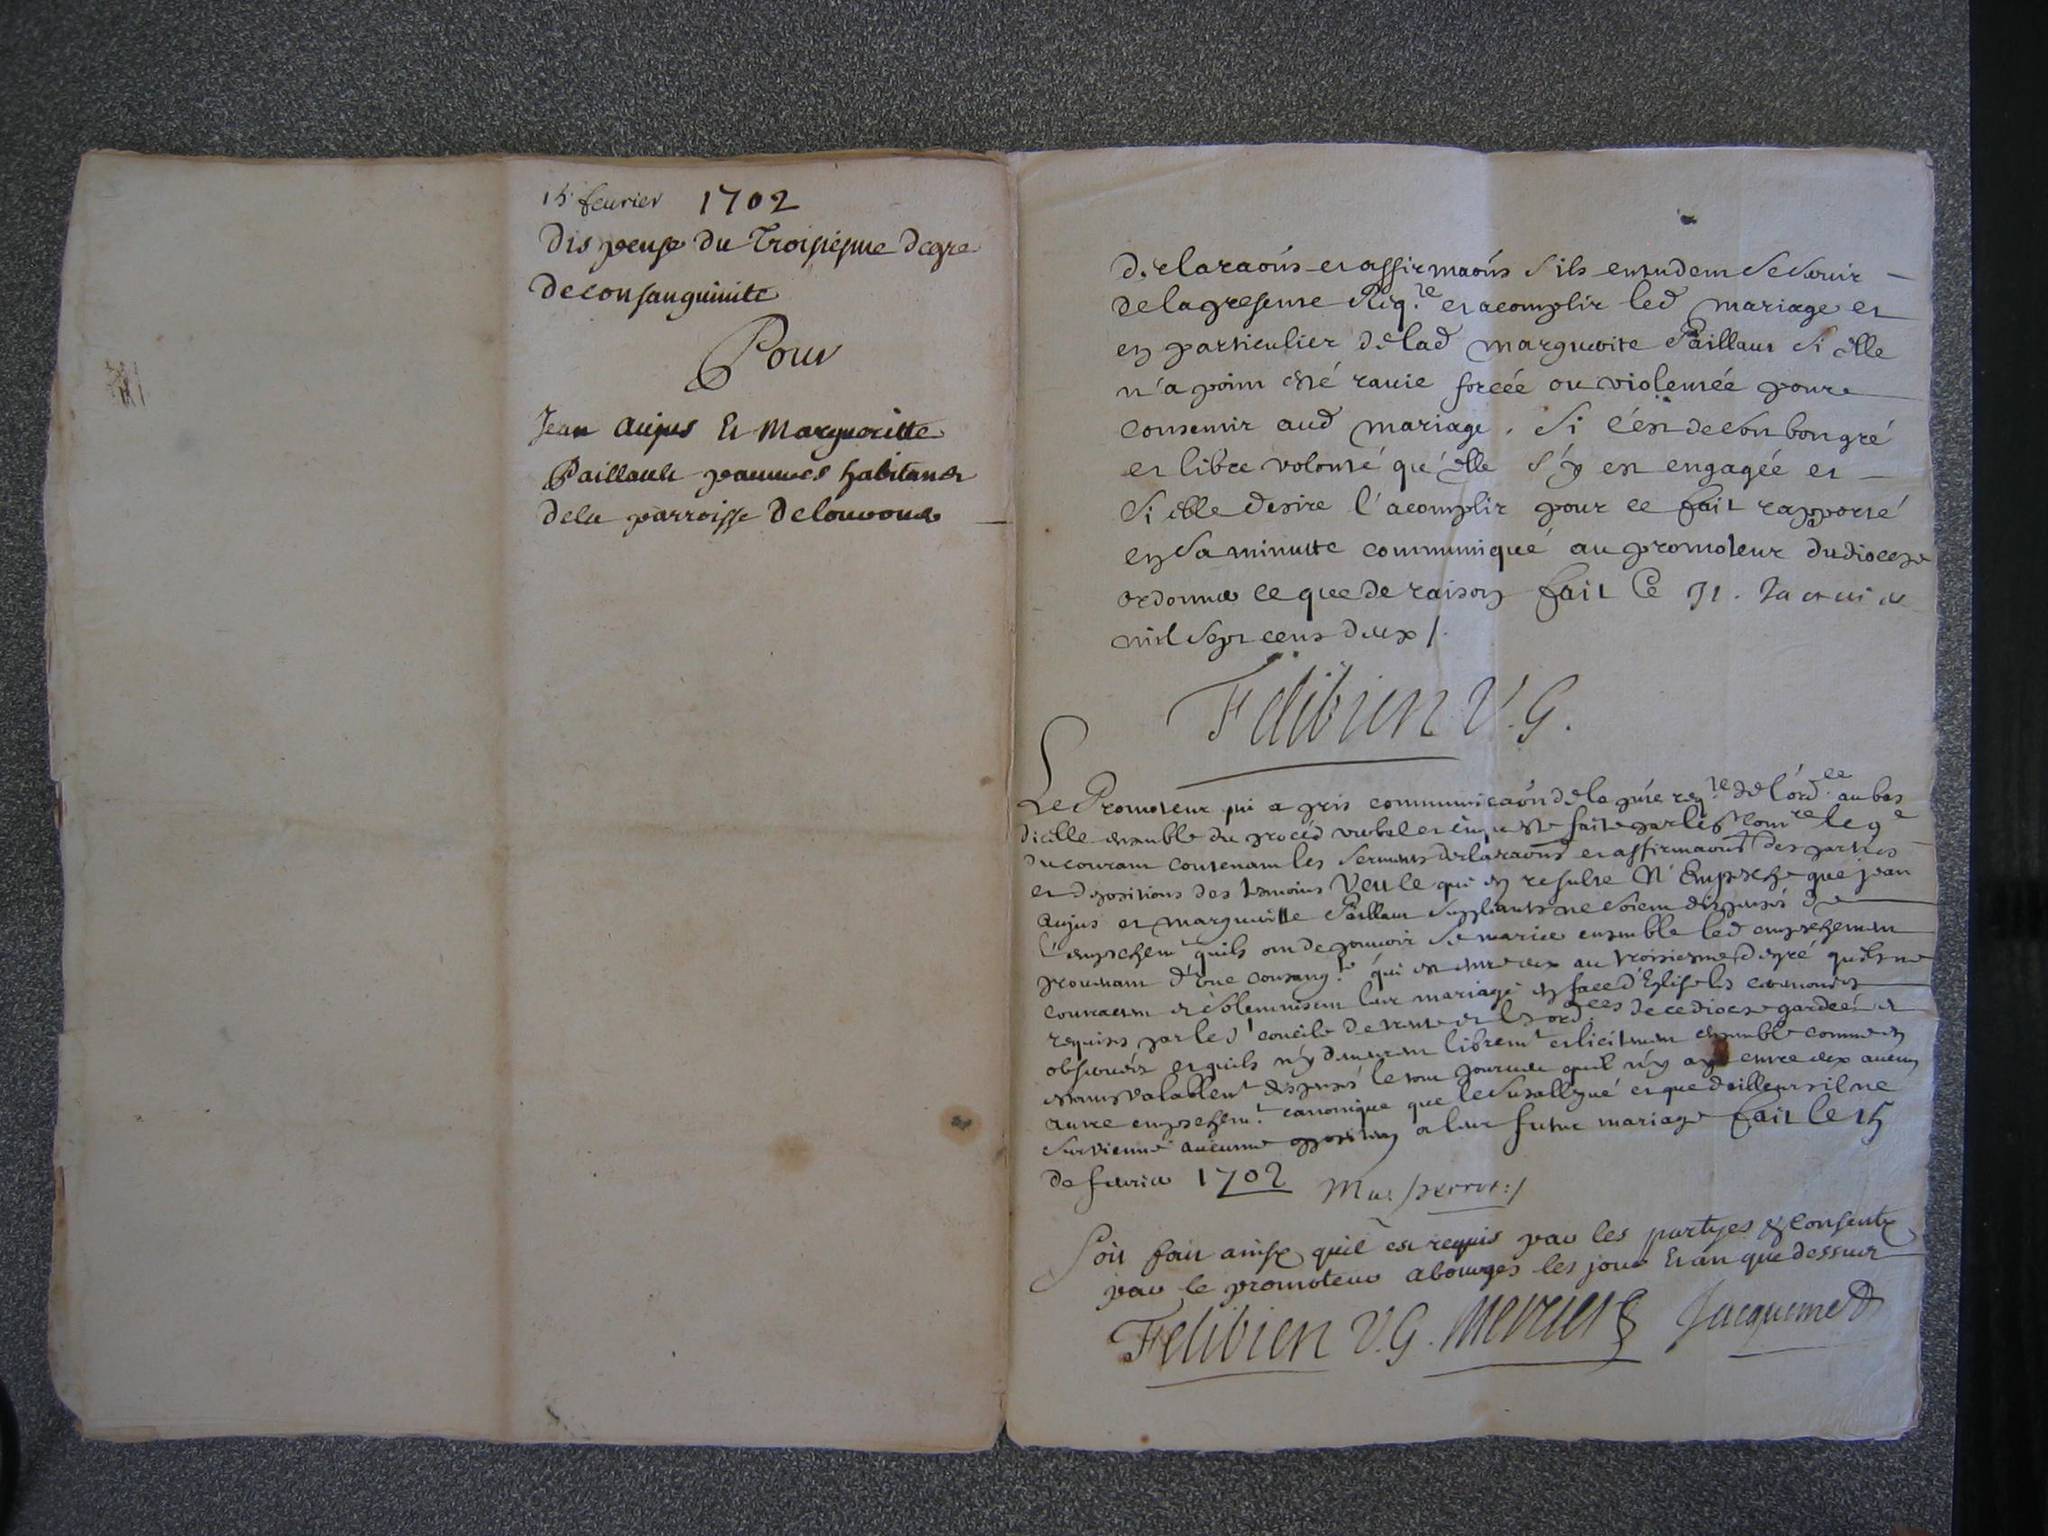 15 feurier 1702
Dispense du Troisiesme degre
de consanguinite
Pour
Jean Aujus Et Margueritte
Paillault pauures habitans
de la parroisse de louroux
declaraons et affirmaons s'ils entendent se seruir
de la presente Reqte et acomplir led mariage et
en particulier de lad marguerite Paillaut si elle
n'a point esté rauie forcée ou violentée pour
consentir aud mariage, si c'est de son bon gré
et libre volonté qu'elle s'y est engagée et
si elle desire l'acomplir pour ce fait rapporté
en sa minutte communiqué au promoteur du diocese
ordonner ce que de raison fait Ce 31. Januier
mil sept cens deux /.
Felibien V.G.
Le Promoteur qui a pris communicaon de la pnte reqte de l'ordce au bas
d'icelle ensemble du procés verbal et enqueste faite par le sr comre le 9e
du courant contenant les serments declaraons et affirmaons des parties
et depositions des temoins Veu le qui en resulte N'Empesche que jean
Aujus et margueritte Paillaut suppliants ne soient dispensés de
l'empeschemt quils ont de pouuoir se marier ensemble led empeschement
prouenant d'une consangte qui est entre eux au troisiesme degré quils ne
contractent et solemnisent leur mariage en face d'Eglise les ceremonies
requises par le st concile de trente et les ordces de ce diocese gardées et
obseruées et quils n'y demeurent libremt et licitement ensemble comme en
estants valablemt dispensés le tout pourueu quil n'y ayt entre eux aucun
autre empeschemt canonique que le susallegué et que d'ailleurs il ne
suruienne aucune opposition a leur futur mariage fait le 15
de feurier 1702 perrot:/
Soit fait ainsy quil est requis par les partyes & consenty
par le promoteur a bourges les jour Et an que dessus
Felibien V.G. Mercier Jacquemet